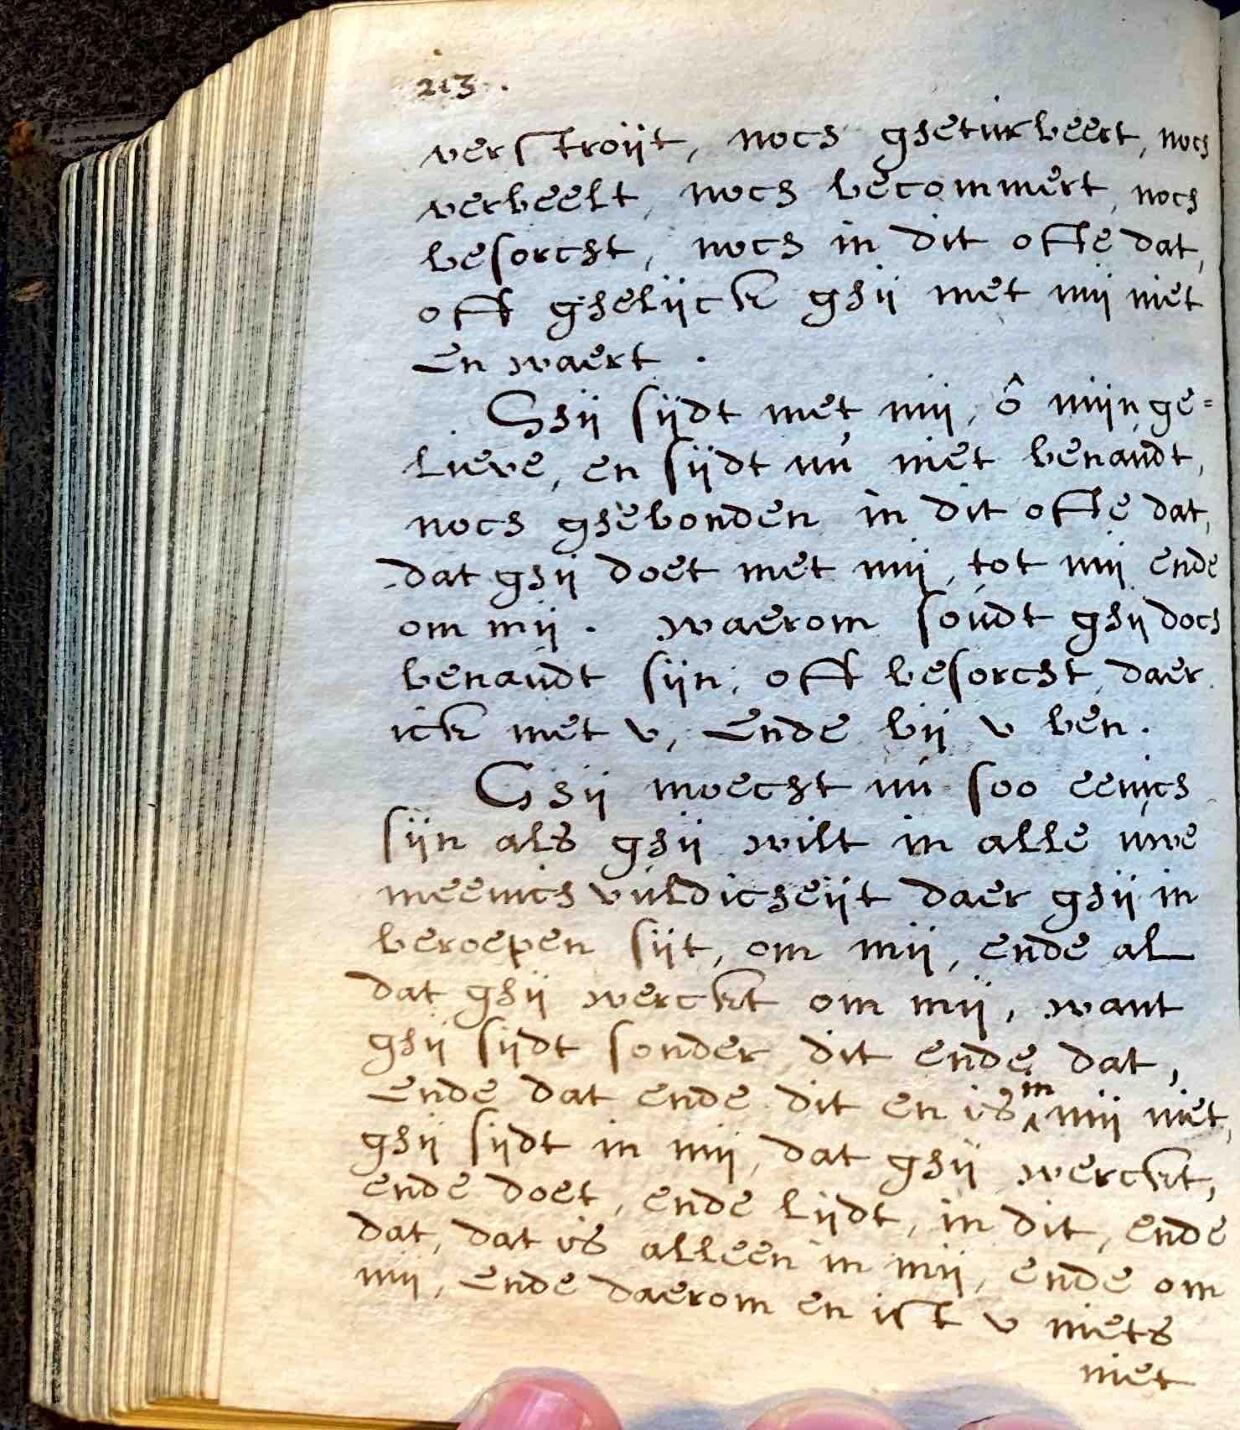 213.
verstroijt, noch gheturbeert, noch
verbeelt, noch becommert, noch
besorcht, noch in dit ofte dat,
oft ghelijck ghij met mij niet
en waert.
Ghij sijdt met mij, ô mijn ge=
lieve, en sijdt nu niet benaudt,
noch ghebonden in dit ofte dat,
dat ghij doet met mij, tot mij ende
om mij. waerom soudt ghij doch
benaudt sijn, oft besorcht, daer
ick met v, ende bij v ben.
Ghij moecht nu soo eenich
sijn als ghij wilt in alle uwe
meenichvuldicheijt daer ghij in
beroepen sijt, om mij, ende al
dat ghij werckt om mij, want
ghij sijdt sonder dit ende dat,
ende dat ende dit en is in mij niet,
ghij sijdt in mij, dat ghij werckt,
ende doet, ende lijdt, in dit, ende
dat, dat is alleen in mij, ende om
mij, ende daerom en ist v niets
niet